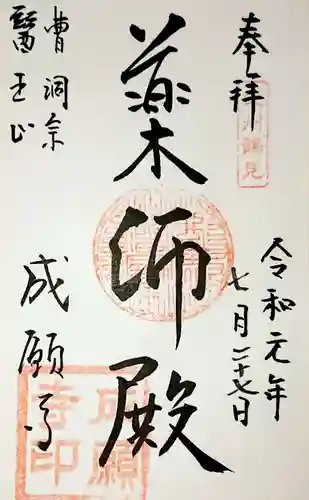 奉拝
令和元年
七月二十七日
薬師殿
曹洞宗
醫王山
成願寺
鶴見
成願寺印